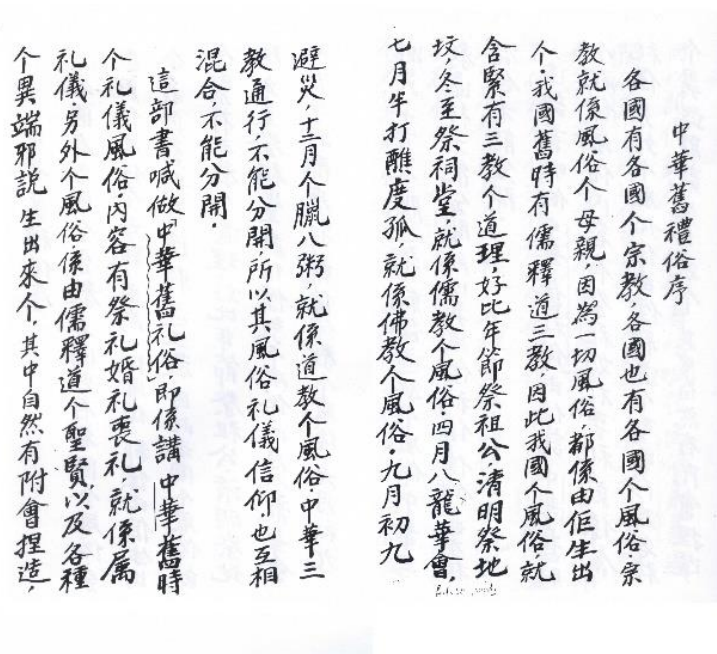 中華舊禮俗序
各國有各國个宗教，各國也有各國个風俗宗
教就係風俗个母親，因為一切風俗，都係由佢生出
个，我國舊時有儒釋道三教因此我國个風俗就
含緊有三教个道理，好比年節祭祖公，清明祭地
坟，冬至祭祠堂，就係儒教个風俗，四月八龍華會，
七月半打醮度孤，就係佛教个風俗，九月初九
避災，十二月个臘八粥，就係道教个風俗，中華三
教通行，不能分開，所以其風俗礼儀信仰，也互相
混合，不能分開．
這部書喊做「中華舊礼俗」即係講中華舊時
个礼儀風俗，內容有祭礼婚礼喪礼，就係属
礼儀，另外个風俗係由儒釋道个聖賢以及各種
个異端邪説生出來个，其中自然有附會捏造，